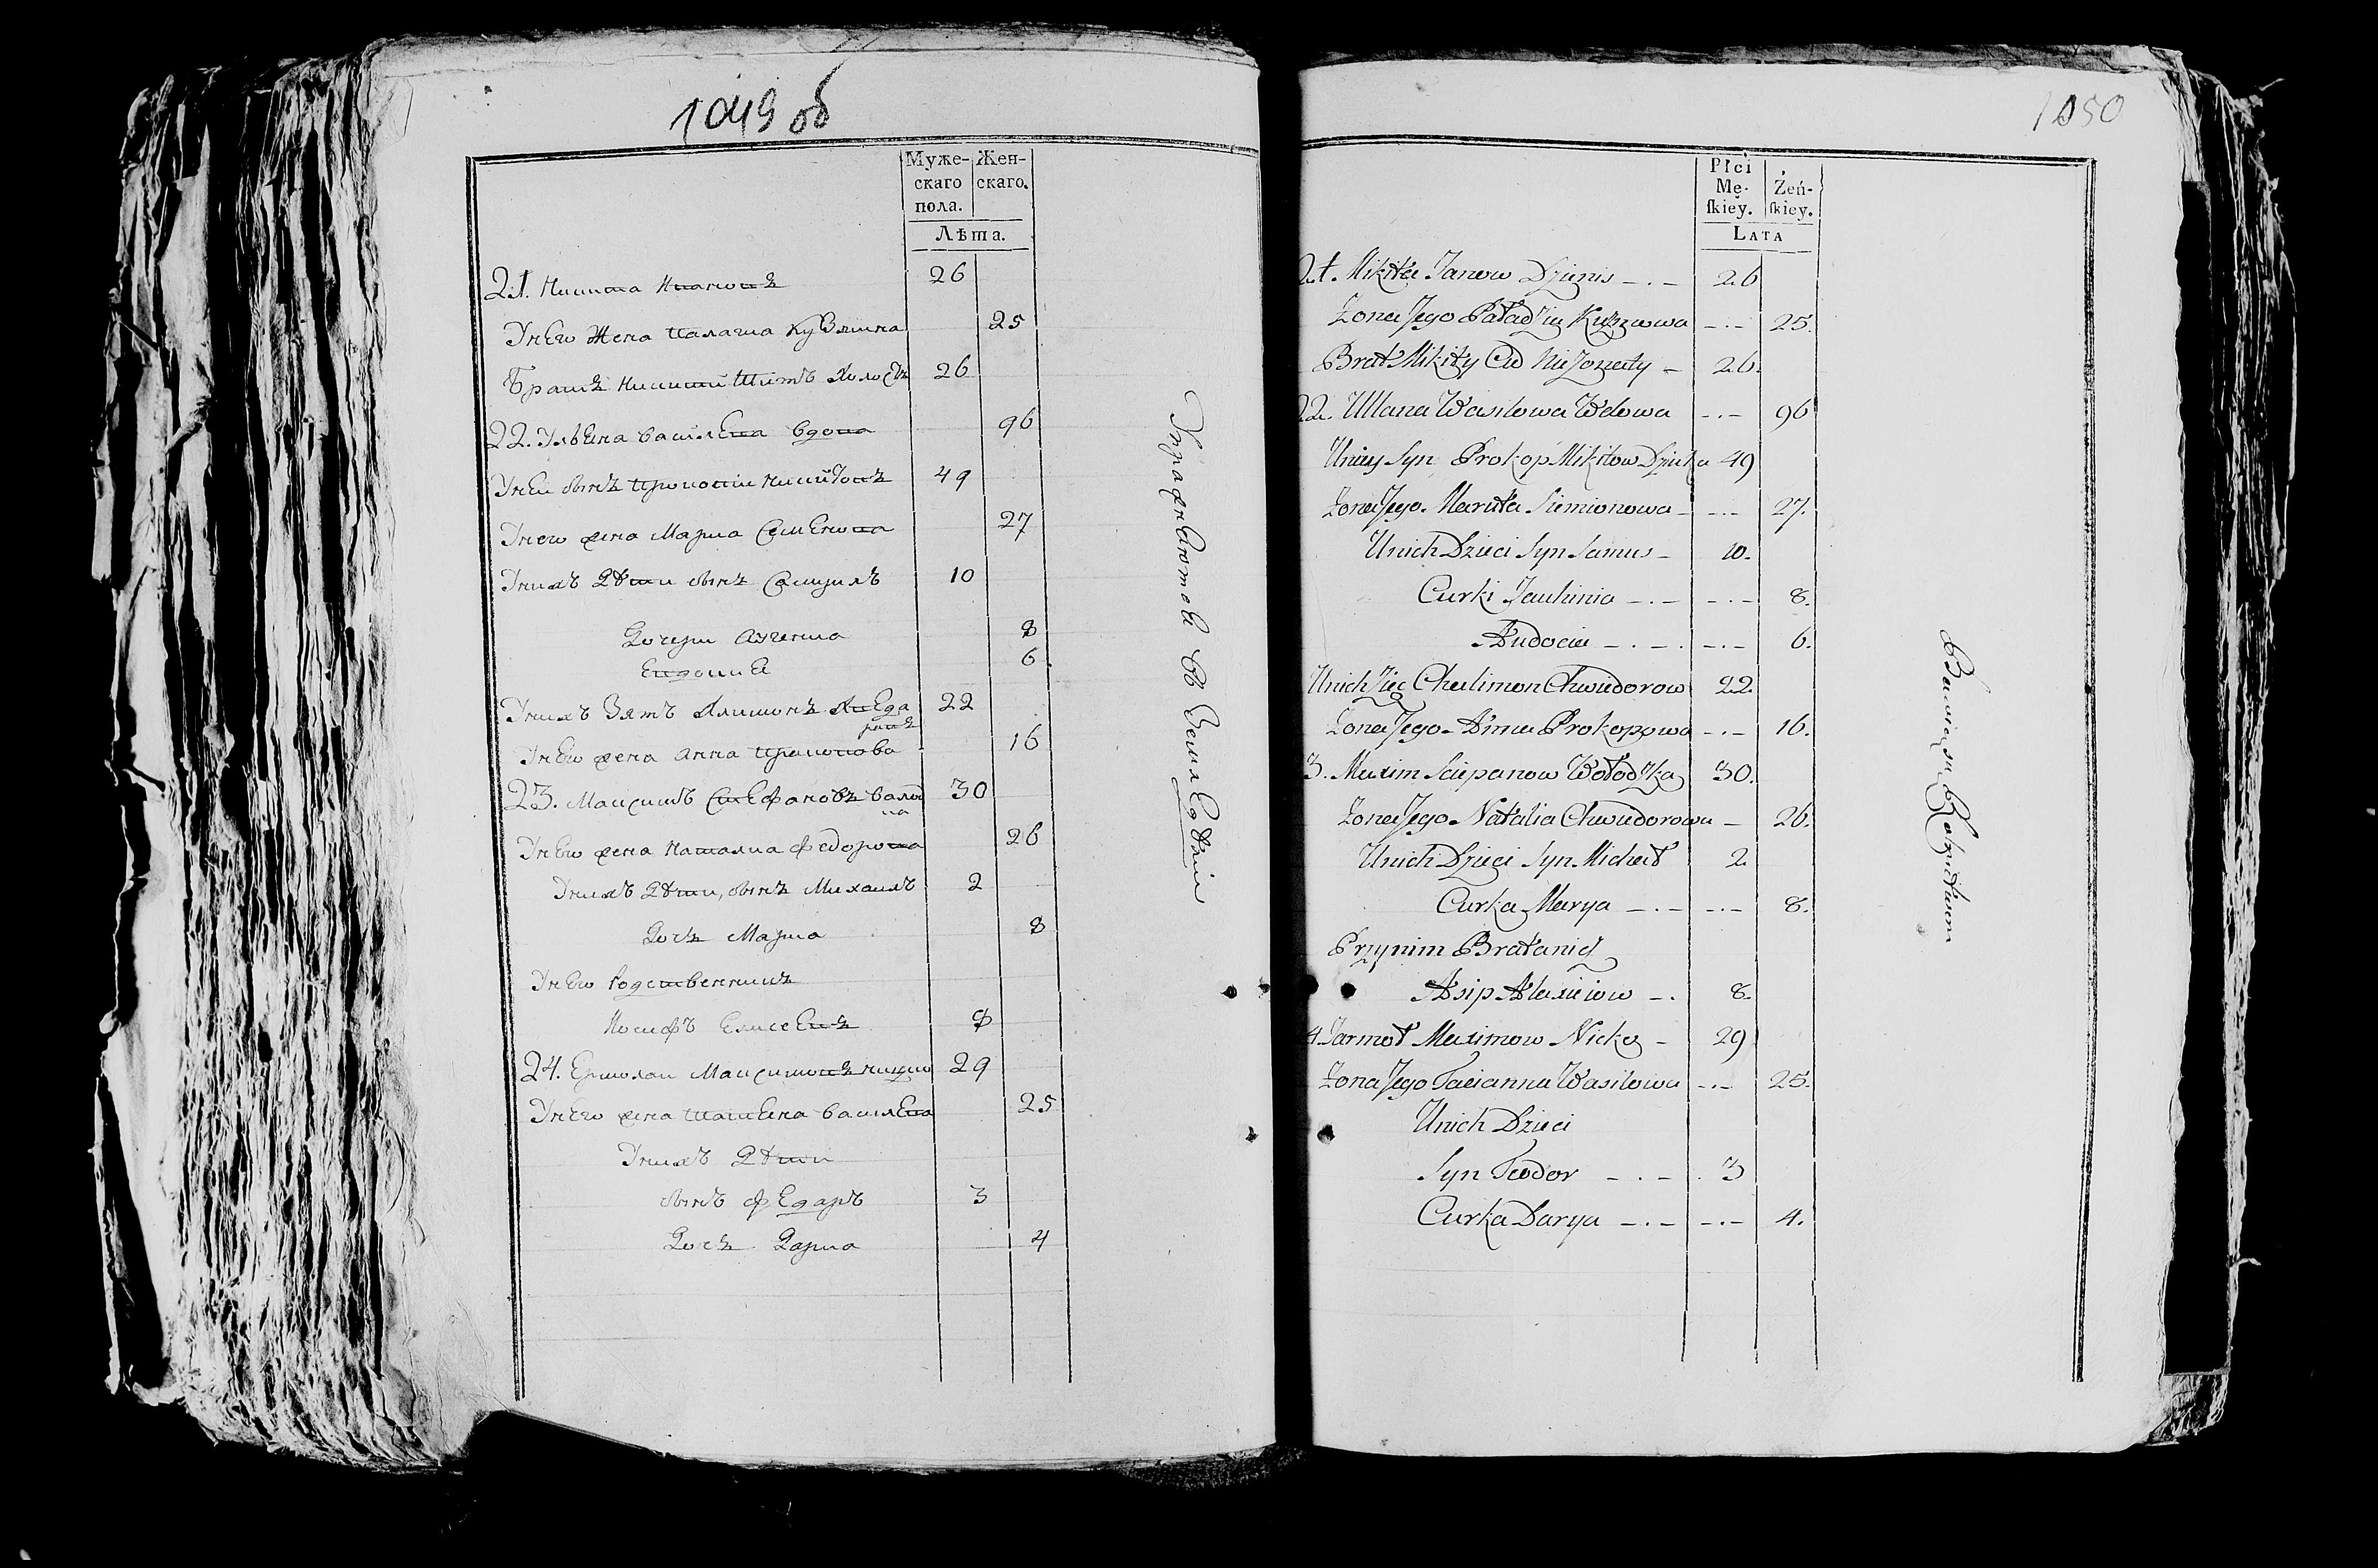 1049 об
Муже-
скаго
пола.
Жен-
скаго.
Лѣта.
21. Никита Ивановъ 26
У него Жена Палагиа Кузмина 25
Братъ Никиты Титъ Холостъ 26
22. Ульяна васильева вдова 96
У неи сынъ Прокопiи Никитовъ 49
У него жена Мариа Семенова 27
У нихъ Дѣти сынъ Самуилъ 10
Дочери 8
Евдокиа 6
У нихъ Зять Хведоровъ 22
У него жена Анна Прокопова 16
23. Максимъ Стефановъ 30
У него жена Наталиа Федорова 26
У нихъ Дѣти, сынъ Михаилъ 2
Дочь Мариа 8
У него Родственникъ
Иосифъ Елисеевъ 8
24. Ермолаи Максимовъ 29
У него жена Татьяна васильева 25
У нихъ Дѣти
сынъ Федаръ 3
Дочь Дариа 4
Упражняются въ Земледѣлiи
1050
Płci
Mę-
ſkiey.
Żeń-
ſkiey.
LATA
21. Mikita Janow Dzienis 26
Zona Jego Paładzia Kuźmowa 25.
Brat Mikity Cid Nieżonaty 26.
22. Ullana Wasilowa Wdowa 96
Uniey Syn Prokop Mikitow 49
Zona Jego Maruta Siemionowa 27.
Unich Dzieci Syn Samus 10.
Curki Jauhinia 8.
Audocia 6.
Unich Zięć Chalimon Chwiedorow 22.
Zona Jego Anna Prokopowa 16.
3. Maxim Sciepanow Wołodźka 30.
Zona Jego Natalia Chwiedorowa 26.
Unich Dzieci Syn Michał 2
Curka Marya 8.
Przynim Bratanic
Asip Alaxiejow 8.
4. Jarmoł Maximow Nicka 29
Zona Jego Tacianna Wasilowa 25.
Unich Dzieci
Syn Teodor 3
Curka Darya 4.
Bawią się Rolnictwem